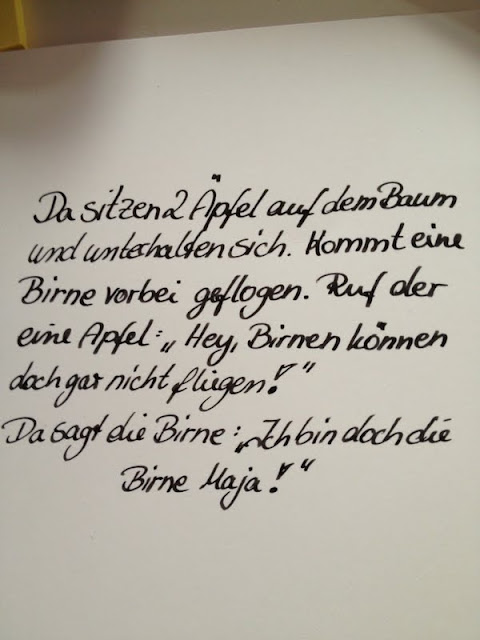 Da sitzen 2 Äpfel auf dem Baum
und unterhalten sich. Kommt eine
Birne vorbei geflogen. Ruf der
eine Apfel: „Hey, Birnen können
doch gar nicht fliegen!"
Da sagt die Birne: „Ich bin doch die
Birne Maja!"